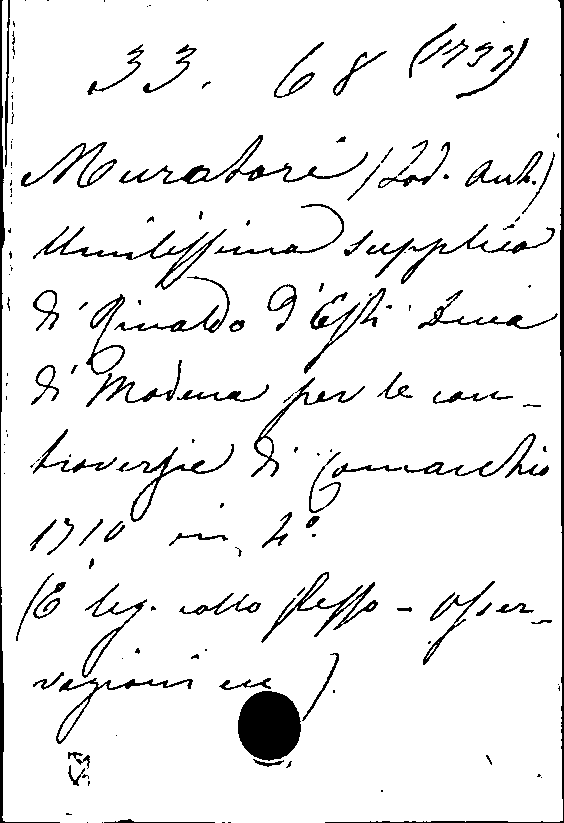 33. 68 (1733)
Muratori (Lod. Ant.)
Umilissima supplica
di Rinaldo d'Este Duca
di Modena per le con-
troversie di Comacchio
1710 in 4°.
(È leg. collo stesso - Osser-
vazioni ec )